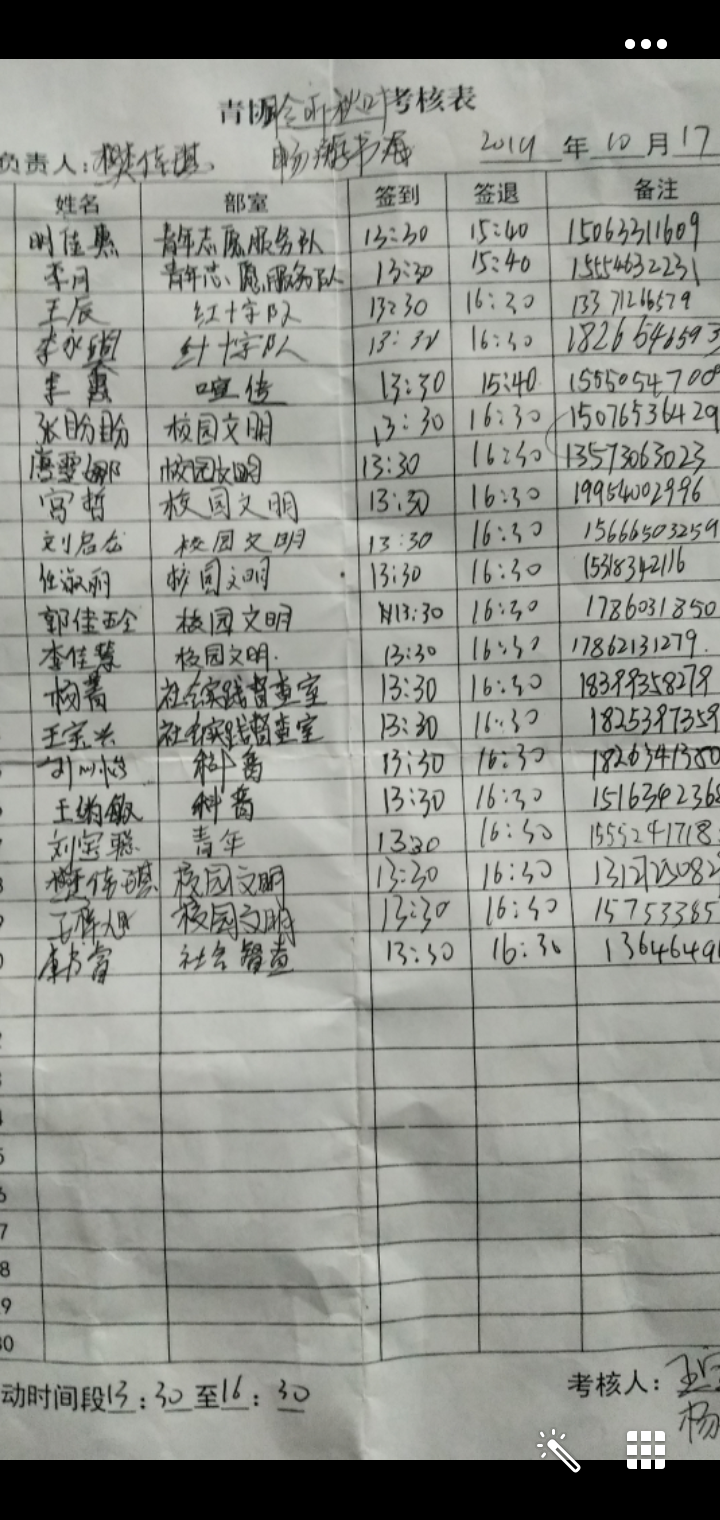 青协聆听秋叶考核表
负责人:樊倩琪 畅游书海 2019年10月17
姓名 部室 签到 签退 备注
明佳 青年志愿服务队 13:30 15:40 15063311609
李月 青年志愿服务队 13:30 15:40 15554632231
王辰 红十字队 13:30 16:30
李永 红十字队 13:30 16:30
李 宣传 13:30 15:40
张盼盼 校园文明 13:30 16:30 15076536429
唐雪娜 校园文明 13:30 16:30 13573063023
宫哲 校园文明 13:30 16:30 19954002996
刘 校园文明 13:30 16:30 15666503259
任淑丽 校园文明 13:30 16:30 15318342116
郭佳 校园文明 13:30 16:30 1786031850
李佳慧 校园文明. 13:30 16:30 17862131279.
杨菁 社会实践督查室 13:30 16:30
王宝兴 社会实践督查室 13:30 16:30 1825397359
刘 科普 13:30 16:30
王 敏 科普 13:30 16:30
刘宝聪 青年 1330 16:30
樊倩琪 校园文明 13:30 16:30
王 校园文明 13:30 16:30
富 社会督查 13:30 16:30
2
3
4
5
6
7
8
9
30
动时间段13:30至16:30 考核人:王宝
杨